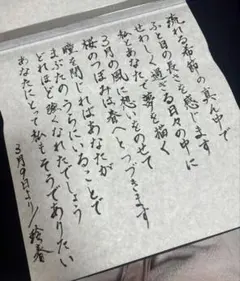 流れる季節の真ん中で
ふと日の長さを感じます
せわしく過ぎる日々の中に
私とあなたで夢を描く
3月の風に想いをのせて
桜のつぼみは春へとつづきます
瞳を閉じればあなたが
まぶたのうらにいることで
どれほど強くなれたでしょう
あなたにとって私もそうでありたい
3月9日より/絵春